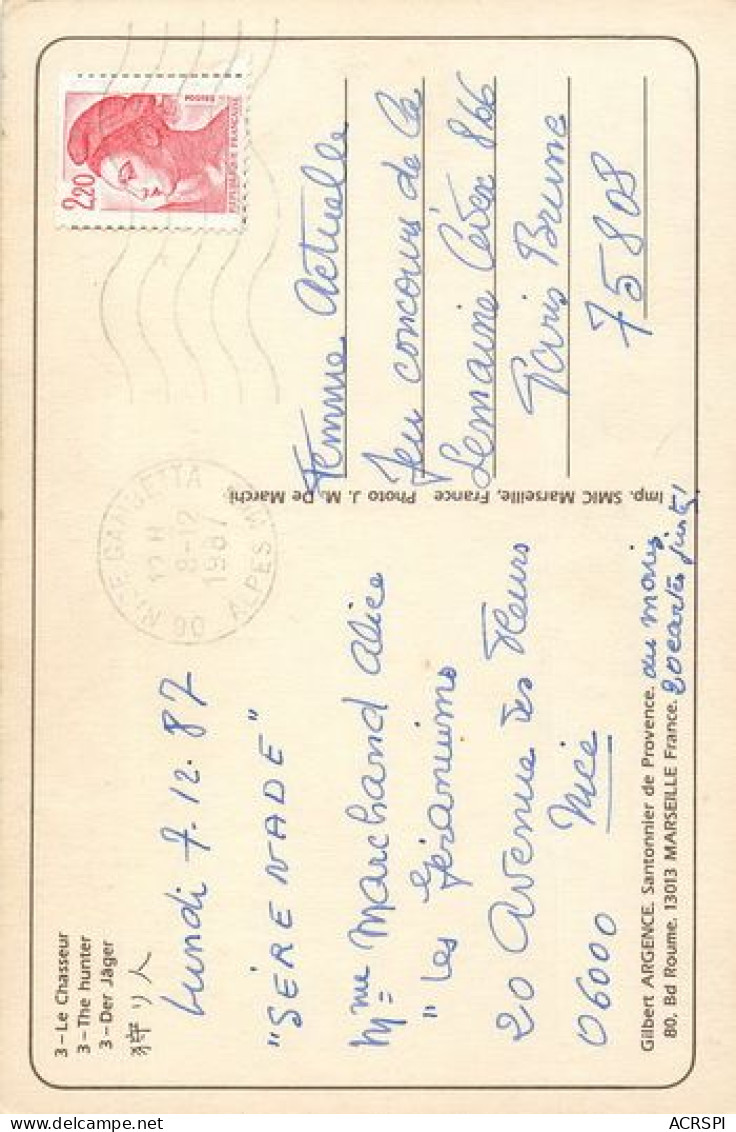 3-Le Chasseur
3-The hunter
3-Der Jäger
狩り人
Lundi 7.12.87
"SÉRÉNADE"
Mme Marchand Alice
"Les Géraniums"
20 Avenue des Fleurs
06000 Nice
Gilbert ARGENCE. Santonnier de Provence.
80, Bd Roume. 13013 MARSEILLE France.
Imp. SMIC Marseille, France Photo J. M. De Marchi
2,20
REPUBLIQUE FRANÇAISE
12 H
8-12
1987
ALPES
Femme Actuelle
Jeu concours de la
Semaine Cedex 866
Paris Brune
75808
ACRSPI